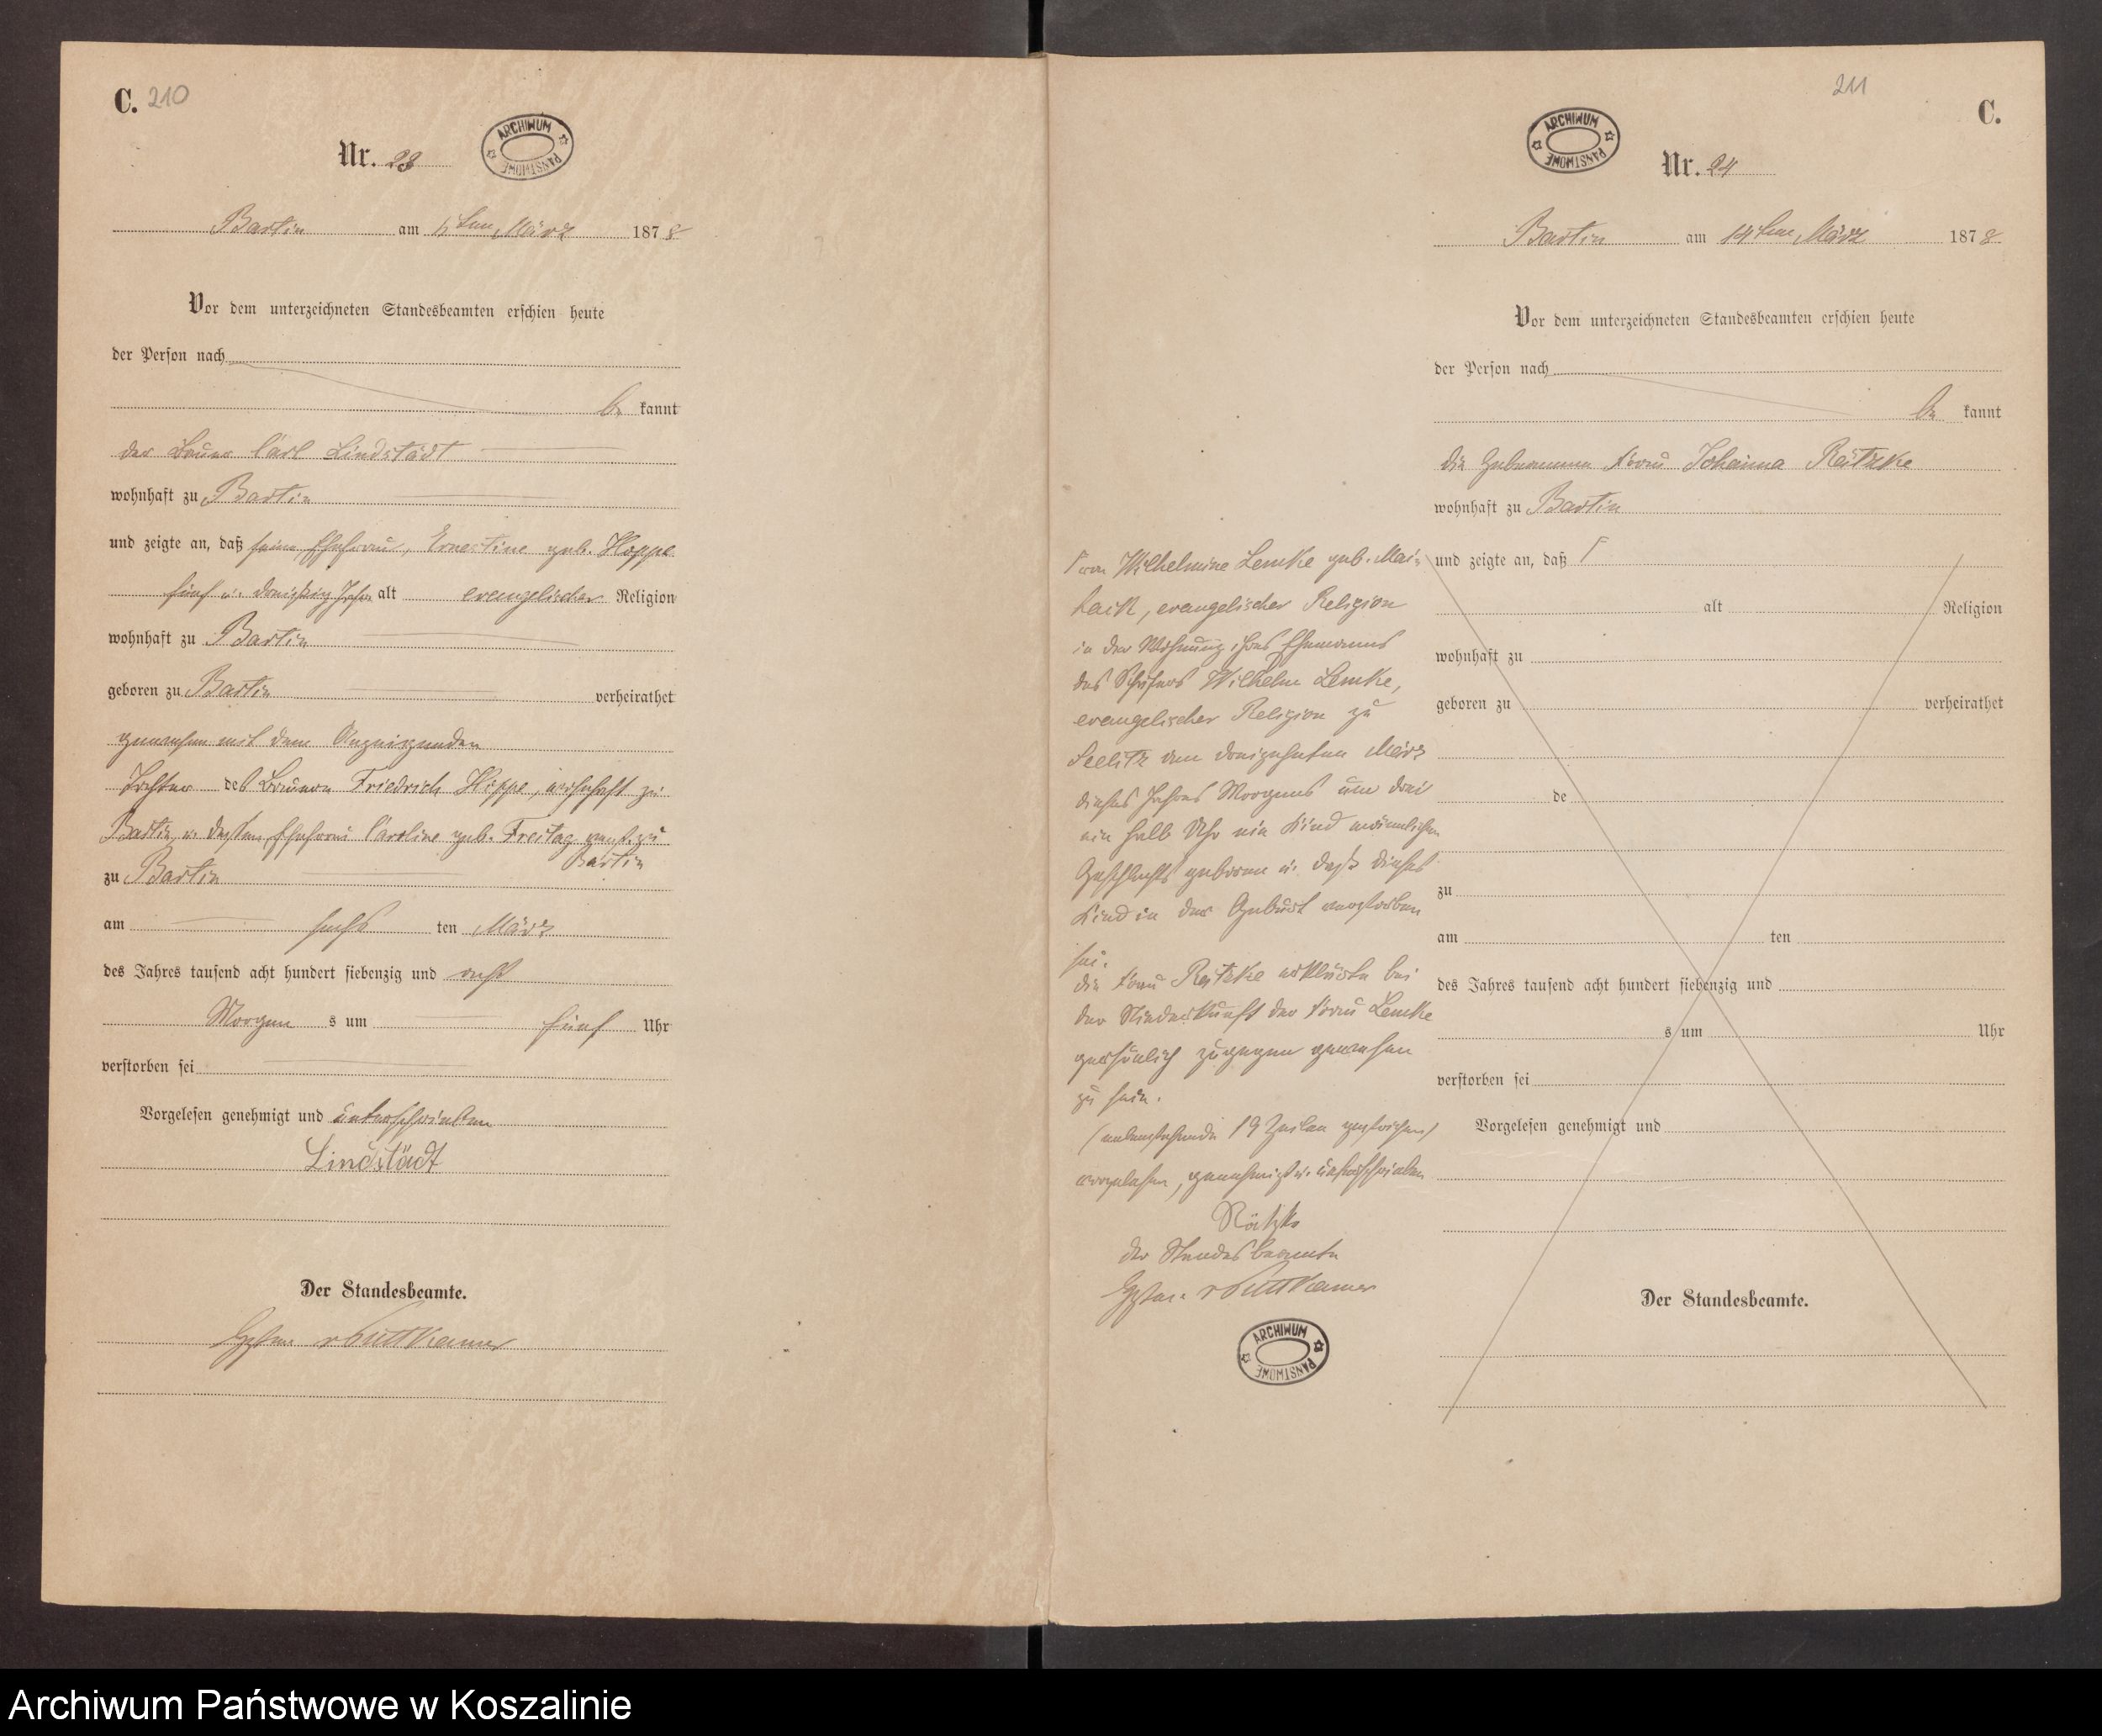 C. 210
ARCHIWUM PAŃSTWOWE
Nr. 23
Bartin am 6ten März 1878
Vor dem unterzeichneten Standesbeamten erschien heute
der Person nach
be kannt
der Bauer Carl Lindstädt
wohnhaft zu Bartin
und zeigte an, daß seine Ehefrau, Ernestine geb. Hoppe
fünf u. dreißig Jahre alt evangelischer Religion
wohnhaft zu Bartin
geboren zu Bartin verheirathet
gewesen mit dem Anzeigenden
Tochter des Bauern Friedrich Hoppe, wohnhaft zu
Bartin u. dessen Ehefrau Caroline geb. Freitag zu
Bartin
zu Bartin
am sechs ten März
des Jahres tausend acht hundert siebenzig und acht
Morgen s um fünf Uhr
verstorben sei
Vorgelesen genehmigt und unterschrieben
Lindstädt
Der Standesbeamte.
v Puttkamer
211
C.
ARCHIWUM PAŃSTWOWE
Nr. 24
Bartin am 14ten März 1878
Vor dem unterzeichneten Standesbeamten erschien heute
der Person nach
be kannt
die Hebamme Frau Johanna Rätzke
wohnhaft zu Bartin
und zeigte an, daß
alt Religion
wohnhaft zu
geboren zu verheirathet
de
zu
am ten
des Jahres tausend acht hundert siebenzig und
s um Uhr
verstorben sei
Vorgelesen genehmigt und
Der Standesbeamte.
von Wilhelmine Lemke geb.
evangelischer Religion
in der Wohnung ihres Ehemannes
des Schäfers Wilhelm Lemke,
evangelischer Religion zu
Seelitz am dreizehnten März
dieses Jahres Morgens um drei
ein halb Uhr ein Kind männlichen
Geschlechts geboren u. daß dieses
Kind in der Geburt verstorben
sei.
die Frau Rätzke erklärte bei
der Niederkunft der Frau Lemke
persönlich zugegen gewesen
zu sein.
(nebenstehende 19 Zeilen gestrichen)
vorgelesen, genehmigt u. unterschrieben
Rätzke
der Standesbeamte
v Puttkamer
ARCHIWUM PAŃSTWOWE
Archiwum Państwowe w Koszalinie